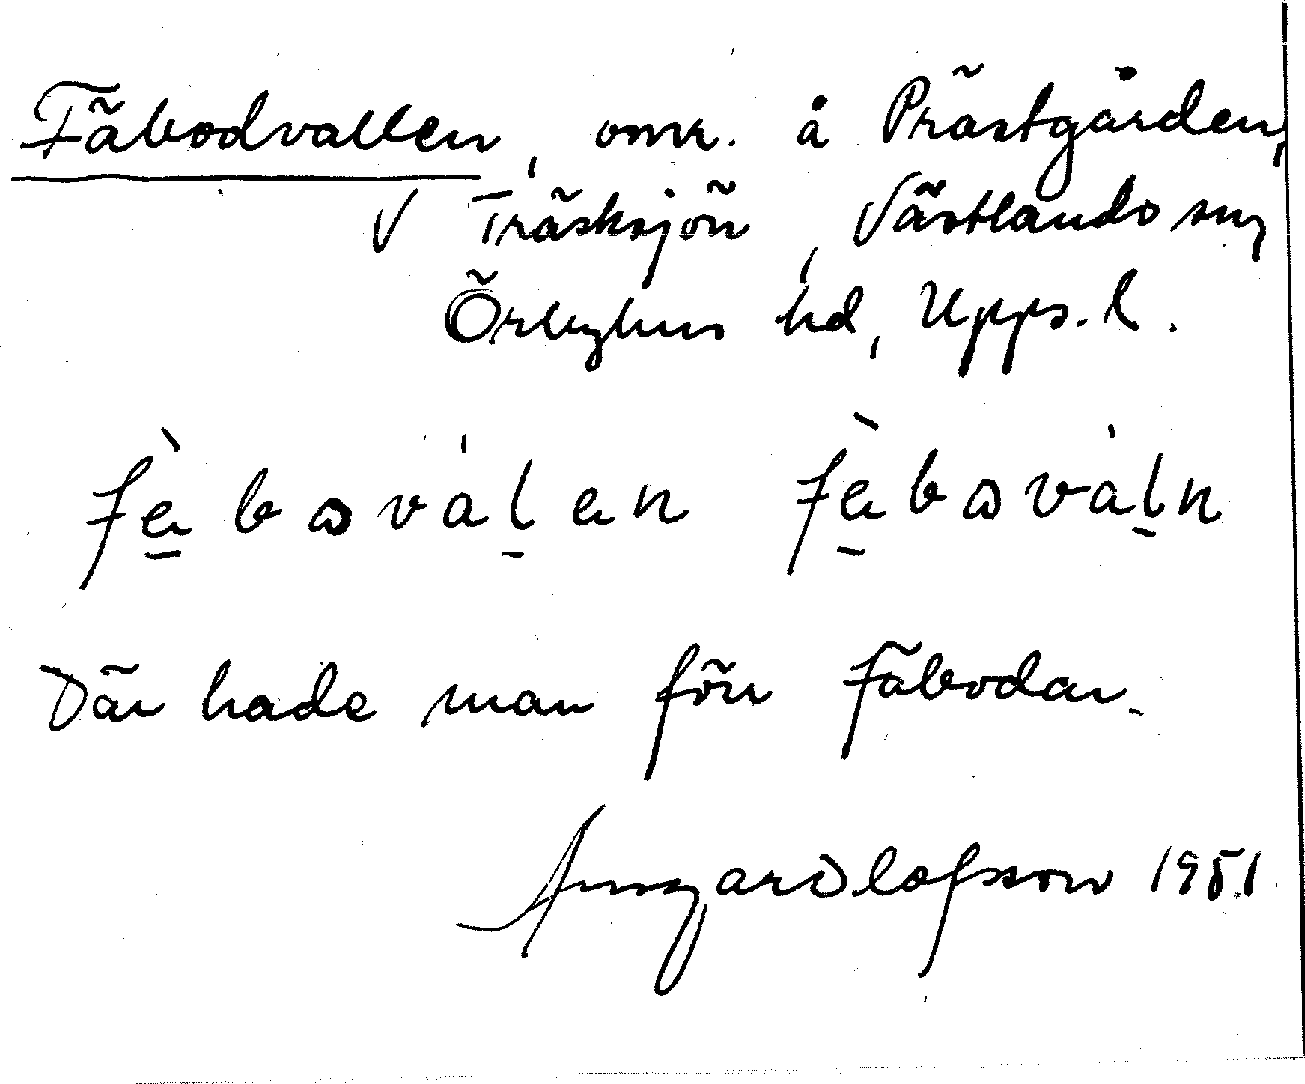 Fäbodvallen, omr. å Prästgården,
V Träsksjön, Västlands sn,
Örbyhus hd, Upps. l.
fæ̀bωvàḷen fæ̀bωvàḷn
Där hade man förr fäbodar.
Ansgar Olofsson 1951